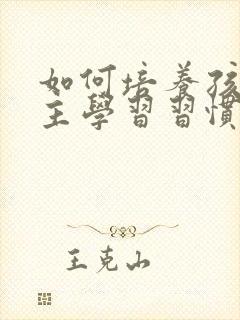 如何培养孩
主學習習慣
王克山